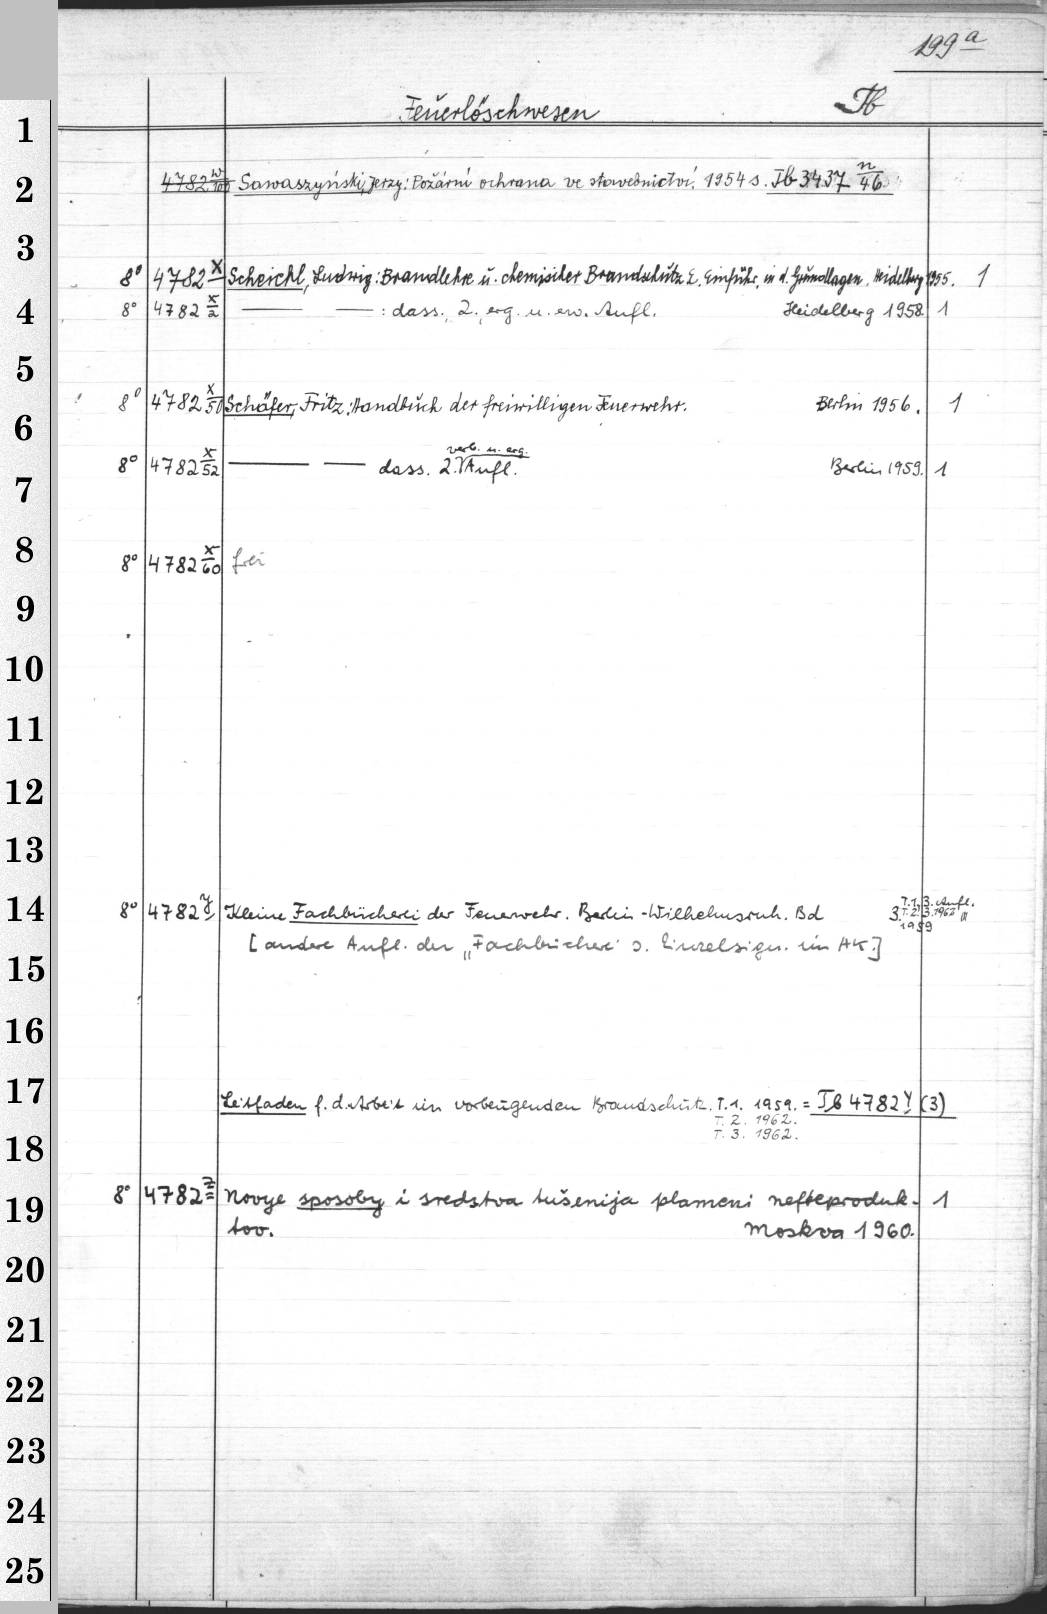 199a
Feuerlöschwesen Tb
1
2 4782 w/100 Sawaszyński, Jerzy: Požární ochrana ve stavebnictví, 1954 s. Tb 3437 n/46
3
8° 4782 x Scheichl, Ludwig: Brandlehre u. chemischer Brandschutz E. Einführ. in d. Grundlagen. Heidelberg 1955. 1
4 8° 4782 x/2 — — : dass., 2., erg. u. erw. Aufl. Heidelberg 1958. 1
5
8° 4782 x/50 Schäfer, Fritz: Handbuch der freiwilligen Feuerwehr. Berlin 1956. 1
6
verb. u. erg.
8° 4782 x/52 — — dass. 2. Aufl. Berlin 1959. 1
7
8 8° 4782 x/60 frei
9
10
11
12
13
T.1. 3. Aufl.
14 8° 4782 y Kleine Fachbücherei der Feuerwehr. Berlin-Wilhelmsruh. Bd 3. T. 2. 3. 1962
1959
[andere Aufl. der „Fachbücherei" s. Einzelsign. im AK.]
15
16
17 Leitfaden f. d. Arbeit im vorbeugenden Brandschutz. T. 1. 1959. = Tb 4782 y (3)
T. 2. 1962.
T. 3. 1962.
18
19 8° 4782 z Novye sposoby i sredstva tušenija plameni nefteproduk- 1
tov. Moskva 1960.
20
21
22
23
24
25